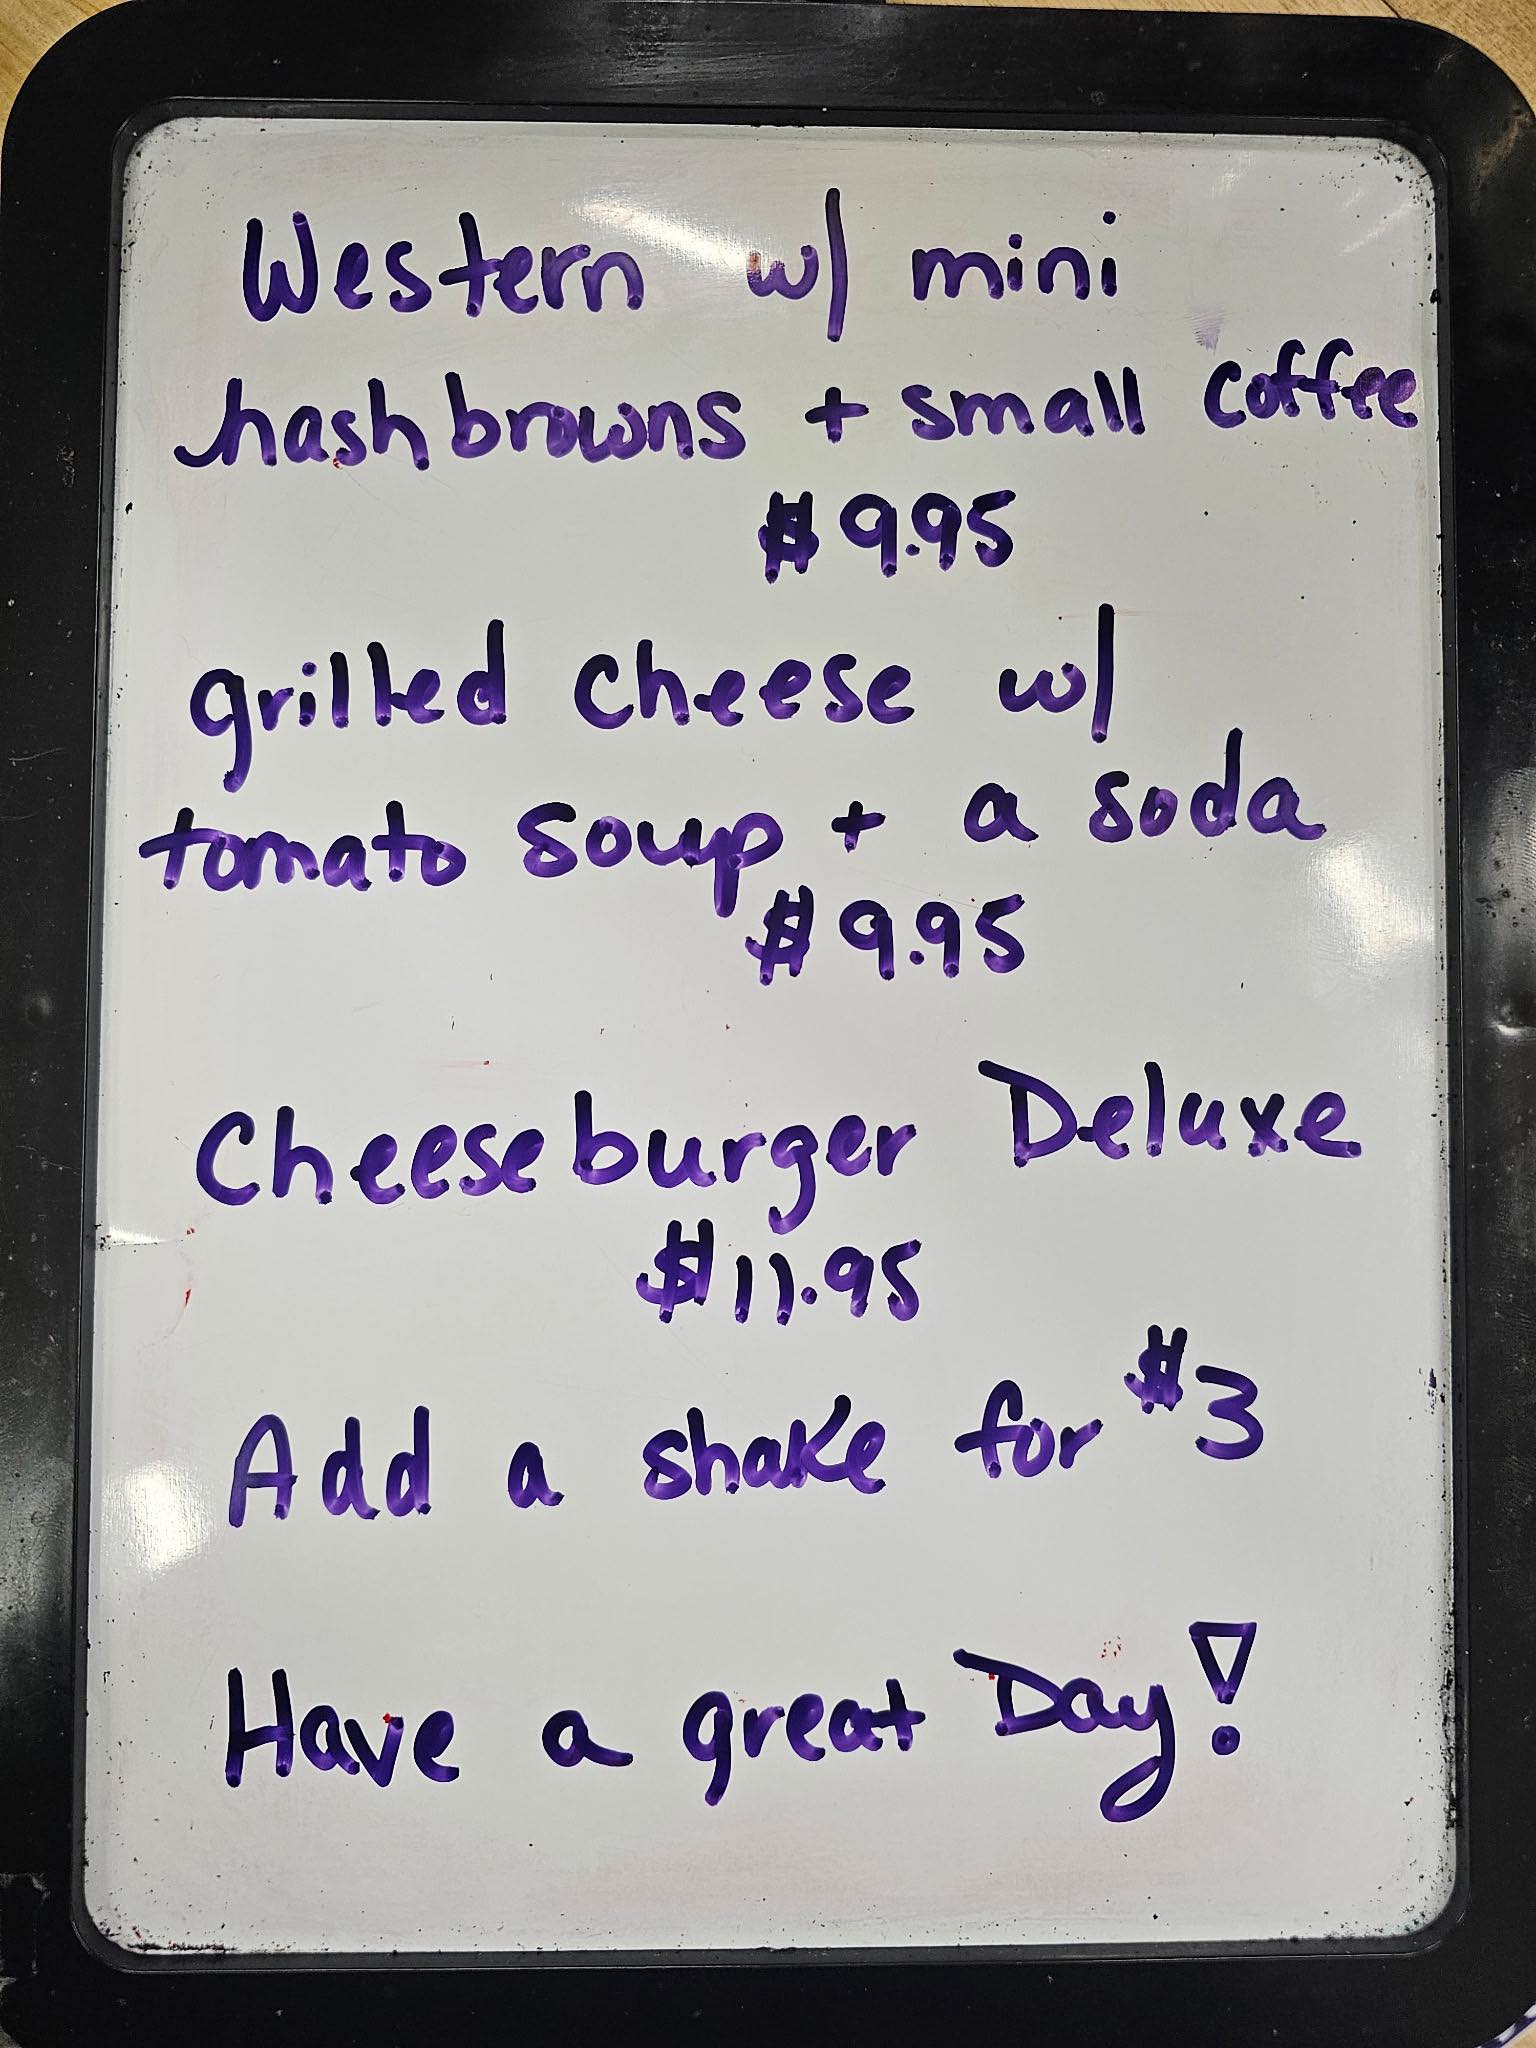 Western w/ mini
hashbrowns + small coffee
$9.95
grilled cheese w/
tomato soup + a soda
$9.95
Cheeseburger Deluxe
$11.95
Add a shake for $3
Have a great Day!